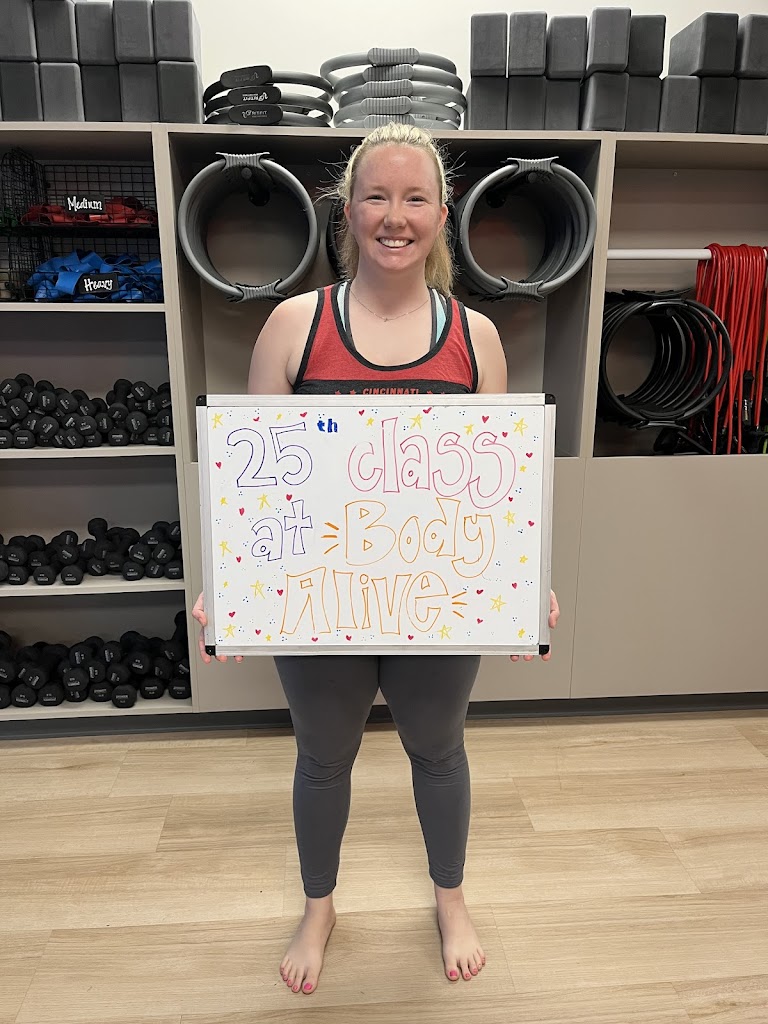 Medium
Heavy
CINCINNATI
25th class
at Body
Alive